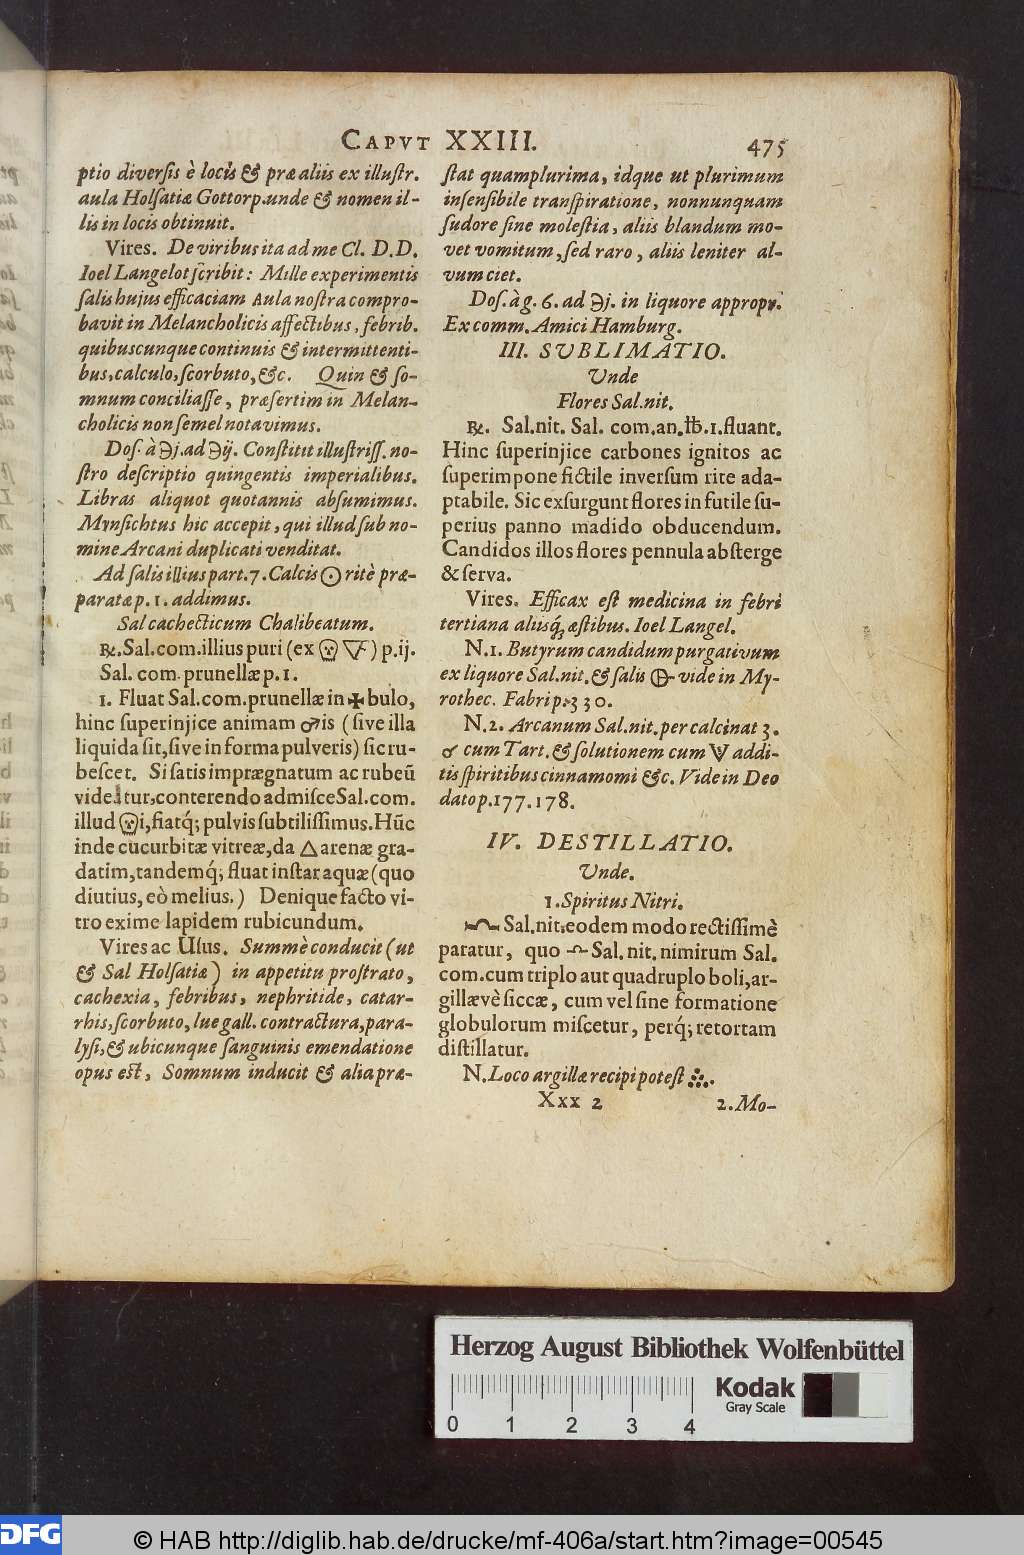 CAPVT XXIII. 475
ptio diversis è locis & præ aliis ex illustr.
aula Holsatiæ Gottorp. unde & nomen il-
lis in locis obtinuit.
Vires. De viribus ita ad me Cl. D. D.
Ioel Langelot scribit: Mille experimentis
salis hujus efficaciam Aula nostra compro-
bavit in Melancholicis affectibus, febrib.
quibuscunque continuis & intermittenti-
bus, calculo, scorbuto, &c. Quin & so-
mnum conciliasse, præsertim in Melan-
cholicis non semel notavimus.
Dos. à ℈j. ad ℈ij. Constitit illustriss. no-
stro descriptio quingentis imperialibus.
Libras aliquot quotannis absumimus.
Mynsichtus hic accepit, qui illud sub no-
mine Arcani duplicati venditat.
Ad salis illius part. 7. Calcis ☉ ritè præ-
paratæ p. 1. addimus.
Sal cachecticum Chalibeatum.
℞. Sal. com. illius puri (ex 💀 🜆) p. ij.
Sal. com. prunellæ p. 1.
1. Fluat Sal. com. prunellæ in ✠bulo,
hinc superinjice animam ♂is (sive illa
liquida sit, sive in forma pulveris) sic ru-
bescet. Si satis imprægnatum ac rubeū
videatur, conterendo admisce Sal. com.
illud 💀i, fiatq́; pulvis subtilissimus. Hūc
inde cucurbitæ vitreæ, da △ arenæ gra-
datim, tandemq́; fluat instar aquæ (quo
diutius, eò melius.) Denique facto vi-
tro exime lapidem rubicundum.
Vires ac Usus. Summè conducit (ut
& Sal Holsatiæ) in appetitu prostrato,
cachexia, febribus, nephritide, catar-
rhis, scorbuto, lue gall. contractura, para-
lysi, & ubicunque sanguinis emendatione
opus est, Somnum inducit & alia præ-
stat quamplurima, idque ut plurimum
insensibile transpiratione, nonnunquam
sudore sine molestia, aliis blandum mo-
vet vomitum, sed raro, aliis leniter al-
vum ciet.
Dos. à g. 6. ad ℈j. in liquore appropr.
Ex comm. Amici Hamburg.
III. SUBLIMATIO.
Unde
Flores Sal. nit.
℞. Sal. nit. Sal. com. an. ℔. 1. fluant.
Hinc superinjice carbones ignitos ac
superimpone fictile inversum rite ada-
ptabile. Sic exsurgunt flores in futile su-
perius panno madido obducendum.
Candidos illos flores pennula absterge
& serva.
Vires. Efficax est medicina in febri
tertiana aliisq́; æstibus. Ioel Langel.
N. 1. Butyrum candidum purgativum
ex liquore Sal. nit. & salis 🜖 vide in My-
rothec. Fabri p. 330.
N. 2. Arcanum Sal. nit. per calcinat 3.
♂ cum Tart. & solutionem cum 🜊 addi-
tis spiritibus cinnamomi &c. Vide in Deo
dato p. 177. 178.
IV. DESTILLATIO.
Unde.
1. Spiritus Nitri.
Sal. nit. eodem modo rectissimè
paratur, quo Sal. nit. nimirum Sal.
com. cum triplo aut quadruplo boli, ar-
gillæ vè siccæ, cum vel sine formatione
globulorum miscetur, perq́; retortam
distillatur.
N. Loco argillæ recipi potest
Xxx 2 2. Mo-
Herzog August Bibliothek Wolfenbüttel
0 1 2 3 4
Kodak
Gray Scale
DFG
© HAB http://diglib.hab.de/drucke/mf-406a/start.htm?image=00545